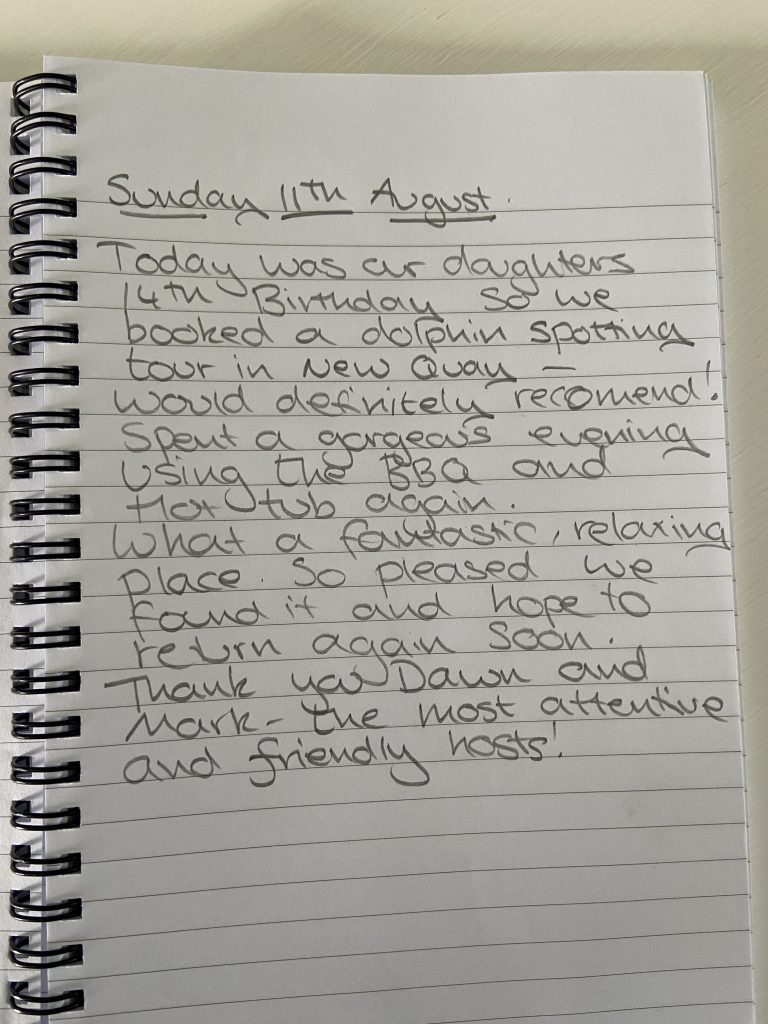 Sunday 11th August.
Today was our daughters
14th Birthday so we
booked a dolphin spotting
tour in New Quay –
would definitely recomend!
Spent a gorgeous evening
using the BBQ and
Hot tub again.
What a fantastic, relaxing
place. So pleased we
found it and hope to
return again soon.
Thank you Dawn and
Mark - the most attentive
and friendly hosts!